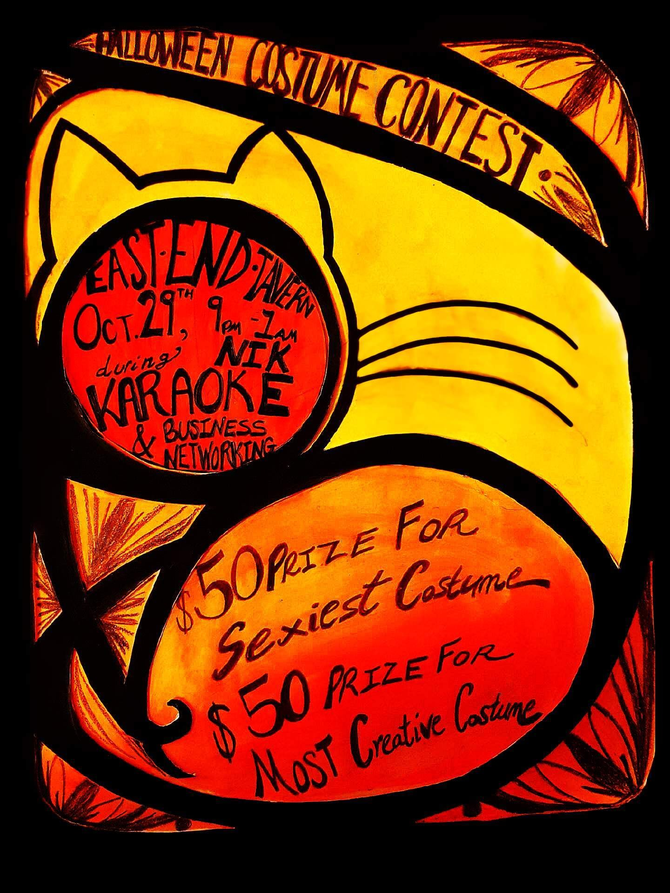 HALLOWEEN COSTUME CONTEST.
EAST·END·TAVERN
OCT.29TH, 9PM-1AM
during NIK
KARAOKE
& BUSINESS
NETWORKING
$50 PRIZE FOR
Sexiest Costume
$50 PRIZE FOR
MOST Creative Costume